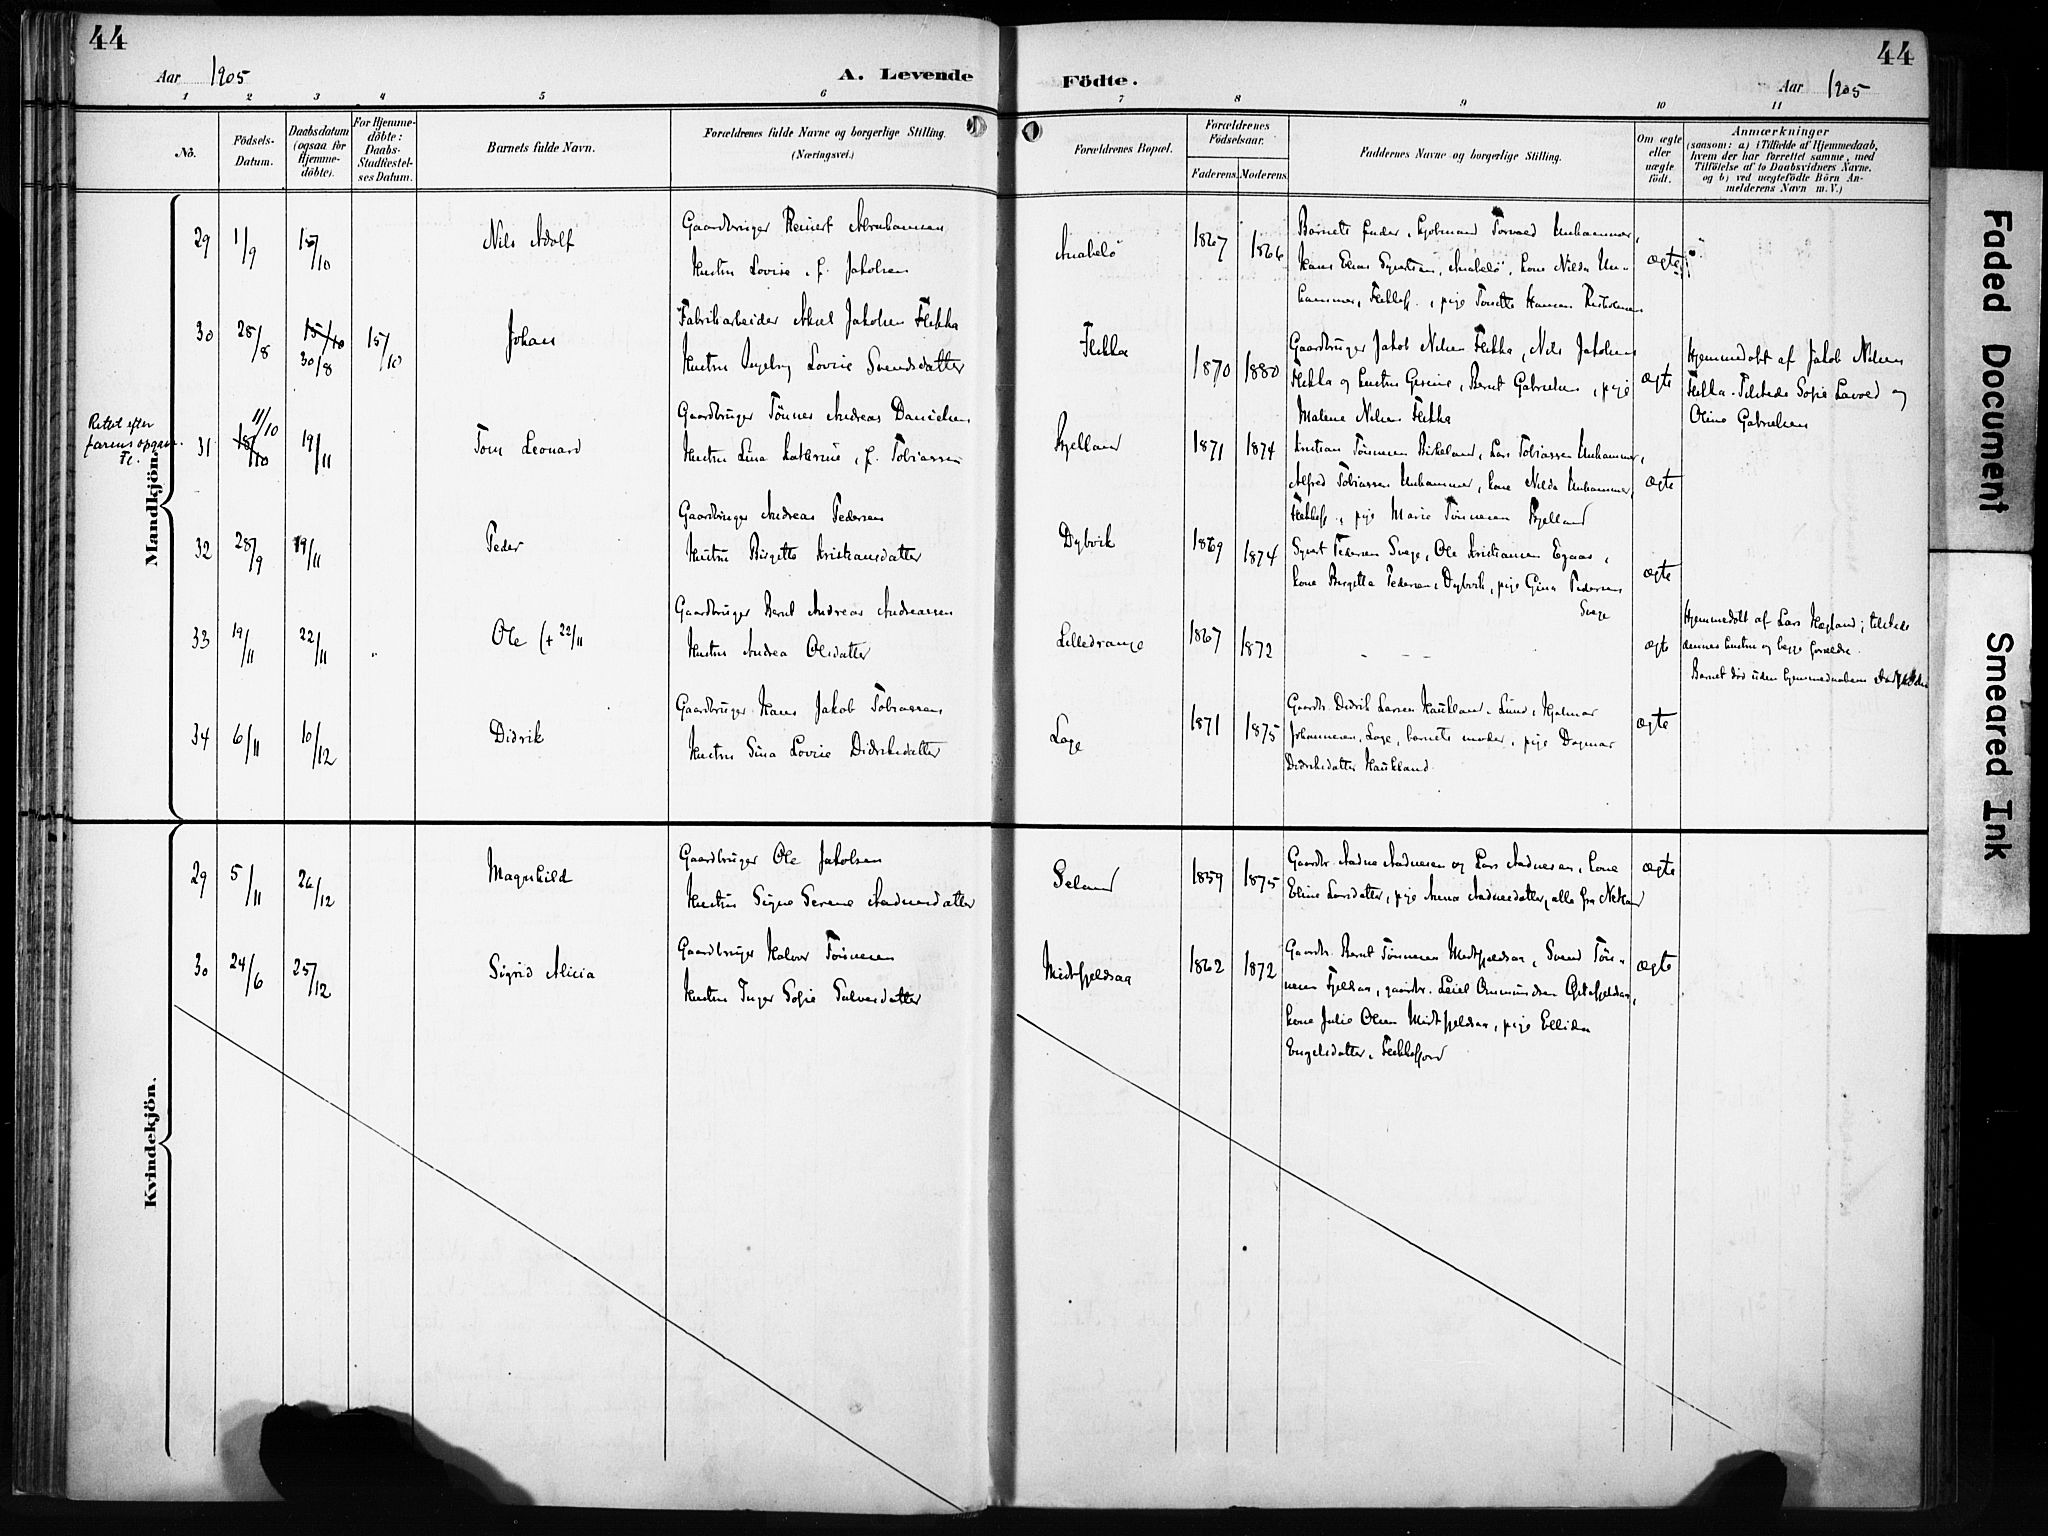 44
44
Aar 1905
A. Levende
Födte.
Aar 1905
1 2 3 4 5 6 7 8 9 10 11
No.
Födsels-
Datum.
Daabsdatum
(ogsaa for
Hjemme-
döbte).
For Hjemme-
döbte:
Daabs-
Stadfæstel-
ses Datum.
Barnets fulde Navn.
Forældrenes fulde Navne og borgerlige Stilling.
(Næringsvei.)
Forældrenes Bopæl.
Forældrenes
Födselsaar.
Faderens. Moderens.
Faddernes Navne og borgerlige Stilling.
Om ægte
eller
uægte
födt.
Anmærkninger
(saasom: a) i Tilfælde af Hjemmedaab,
hvem der har forrettet samme, med
Tilföielse af to Daabsvidners Navne,
og b) ved uægtefödte Börn An-
melderens Navn m. V.)
Mandkjön.
29 1/9 15/10 Nils Adolf
Gaardbruger Reinert Abrahamsen
Hustru Lovise, f. Jakobsen
Anabelö 1867 1866
Barnets fader, Torvald Unhammer,
Hans Elias Anabelö, kone Nilda Un-
hammer, Flekkefj., pige Tonette Hansen
ægte
30 28/8 15/10 30/8 15/10 Johan
Fabrikarbeider Aksel Jakobsen Flikka
Hustru Ingeborg Lovise Svendsdatter
Flikka 1870 1880
Gaardbruger Jakob Nilsen Flikka, Nils Jakobsen
Flikka og hustru Gesine, Bernt Gabrielsen, pige
Malene Nilsen Flikka
ægte
Hjemmedøbt af Jakob Nilsen
Flikka. Tilstede Sofie Lavold og
Oline Gabrielsen
Rettet efter
farens opgave.
31 11/10 18/10 19/11 Tom Leonard
Gaardbruger Tönnes Andreas Danielsen
Hustru Lina Katerine, f. Tobiassen
Kjelland 1871 1874
Kristian Tönnesen Birkeland, Lars Tobiassen Unhammer,
Alfred Tobiassen Unhammer, kone Nilda Unhammer,
Flekkefj., pige Marie Tönnesen Kjelland
ægte
32 28/9 19/11 Peder
Gaardbruger Andreas Pedersen
Hustru Birgitte Kristiansdatter
Dybvik 1869 1874
Syvert Pedersen Svege, Ole Kristiansen Egaas,
kone Birgitta Pedersen, Dybvik, pige Gina Pedersen
Svege
ægte
33 19/11 22/11 Ole (+ 22/11
Gaardbruger Bernt Andreas Andreassen
Hustru Andrea Olsdatter
Lilledrange 1867 1872
ægte
Hjemmedøbt af Lars Hægland; tilstede
dennes hustru og begge forældre.
Barnet død uden hjemmedaabens
34 6/11 10/12 Didrik
Gaardbruger Hans Jakob Tobiassen
Hustru Sina Lovise Didriksdatter
Loge 1871 1875
Gaardbr. Didrik Larsen Haukland, Lund, Hjalmar
Johannesen, Loge, barnets moder, pige Dagmar
Didriksdatter Haukland
ægte
Kvindekjön.
29 5/11 26/12 Magnhild
Gaardbruger Ole Jakobsen
Hustru Signe Serene Aadnesdatter
Seland 1859 1875
Gaardbr. Aadne Aadnesen og Lars Aadnesen, kone
Eline Larsdatter, pige Anna Aadnesdatter, alle fra Netland
ægte
30 24/6 25/12 Sigrid Alicia
Gaardbruger Halvor Tönnesen
Hustru Inger Sofie Salvesdatter
Midtfjeldsaa 1862 1872
Gaardbr. Bernt Tönnesen Midtfjeldsaa, Svend Tön-
nesen Fjeldsaa, gaardbr. Leiel Omundsen
kone Julie Olsen Midtfjeldsaa, pige Ellida
Engelsdatter, Flekkefjord
ægte
Faded Document
Smeared Ink